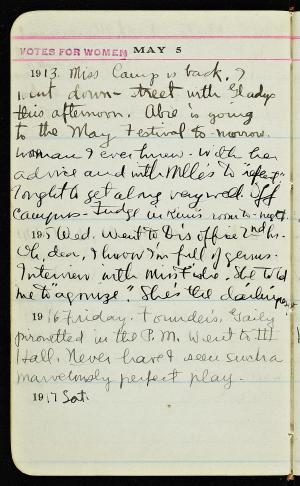 VOTES FOR WOMEN MAY 5
1913. Miss Camp is back. I
went down-street with Gladys
this afternoon. Abie is going
to the May Festival to-morrow.
woman I ever knew. With her
advice and with Mlle's to "
I ought to get along very well off
Campus. Fudge in room to-night.
1915 Wed. Went to Di's office 2nd hr.
Oh, dear, I know I'm full of germs.
Interview with Miss. She told
me to "agonize." She's the darlingest
1916 Friday. Founder's. Gaily
pirouetted in the P.M. Went to
Hall. Never have I seen such a
marvelously perfect play.
1917 Sat.